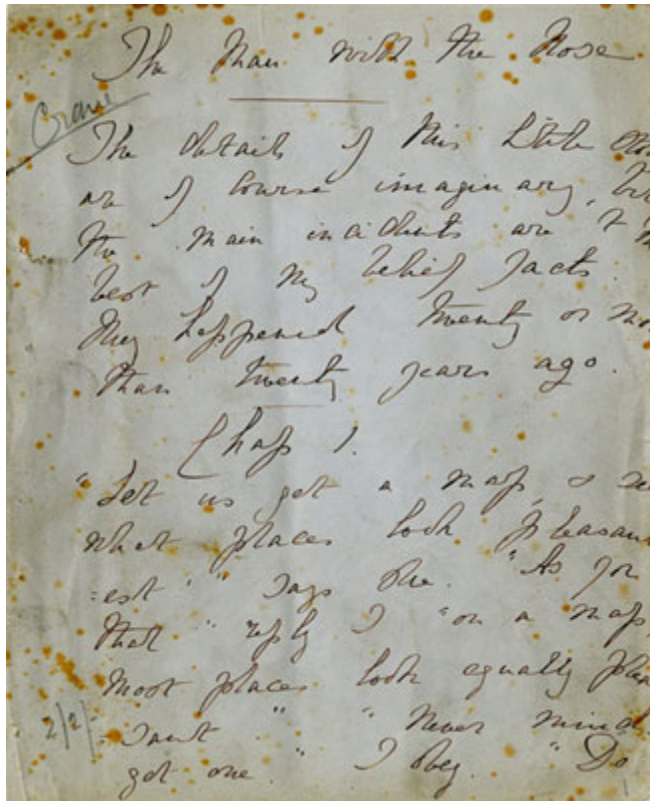 The Man with the Nose
Crane
The details of this little
are of course imaginary,
the main incidents are to
best of my belief facts.
They happened twenty or
than twenty years ago.
Chap 1.
"Let us get a map, &
what places look pleasant
:est" " says she. "As for
that" reply I "on a map,
most places look equally
:sant." "Never mind.
get one." I obey. "Do
2/2/-